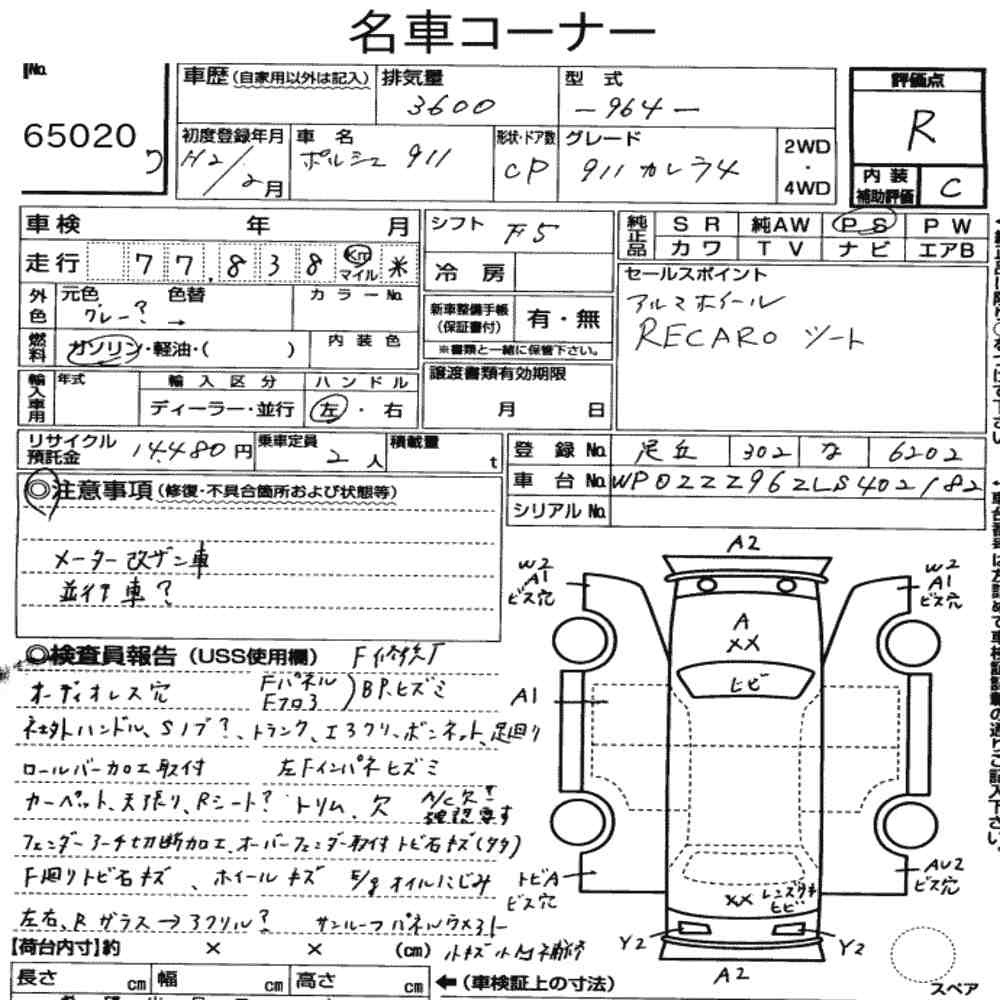 名車コーナー
No.
65020
車歴（自家用以外は記入）
排気量
3600
型 式
－964－
評価点
R
初度登録年月
H2/2月
車 名
ポルシェ 911
形状・ドア数
CP
グレード
911 カレラ4
2WD
・
4WD
内装
補助評価
C
車検 年 月
走行 77,838 Km マイル 米
シフト
F5
冷 房
純正品
SR 純AW PS PW
カワ TV ナビ エアB
外色
元色 色替
グレー？ →
カラーNo.
燃料
ガソリン・軽油・( )
内装色
新車整備手帳
（保証書付）
有・無
※書類と一緒に保管下さい。
セールスポイント
アルミホイール
RECARO シート
輸入車用
年式
輸入区分
ディーラー・並行
ハンドル
左・右
譲渡書類有効期限
月 日
リサイクル
預託金
14480円
乗車定員
2人
積載量
t
登録No.
足立 302 な 6202
車台No.
WP0ZZZ96ZLS402182
シリアルNo.
◎注意事項（修復・不具合箇所および状態等）
メーター改ザン車
並行車？
◎検査員報告（USS使用欄） F修
オーディオレス穴 Fパネル Fフロ BP、ヒズミ
ハンドル、Sノブ？、トランク、エプロン、ボンネット、足廻り
ロールバー加工取付 左Fインパネヒズミ
カーペット、天張り、Rシート？ トリム、穴 A/C欠？
フェンダーアーチ切断加工、オーバーフェンダー取付 トビ石キズ
F廻りトビ石キズ、ホイールキズ E/gオイルにじみ
左右、Rガラス→アクリル？ サンルーフパネル
小キズ小凹 補修
【荷台内寸】約 × × （cm）
長さ cm 幅 cm 高さ cm
←（車検証上の寸法）
A2
W2
A1
ビス穴
W2
A1
ビス穴
A
XX
ヒビ
A1
トビA
ビス穴
XX レンズワレ
ヒビ
AU2
ビス穴
Y2
Y2
A2
スペア